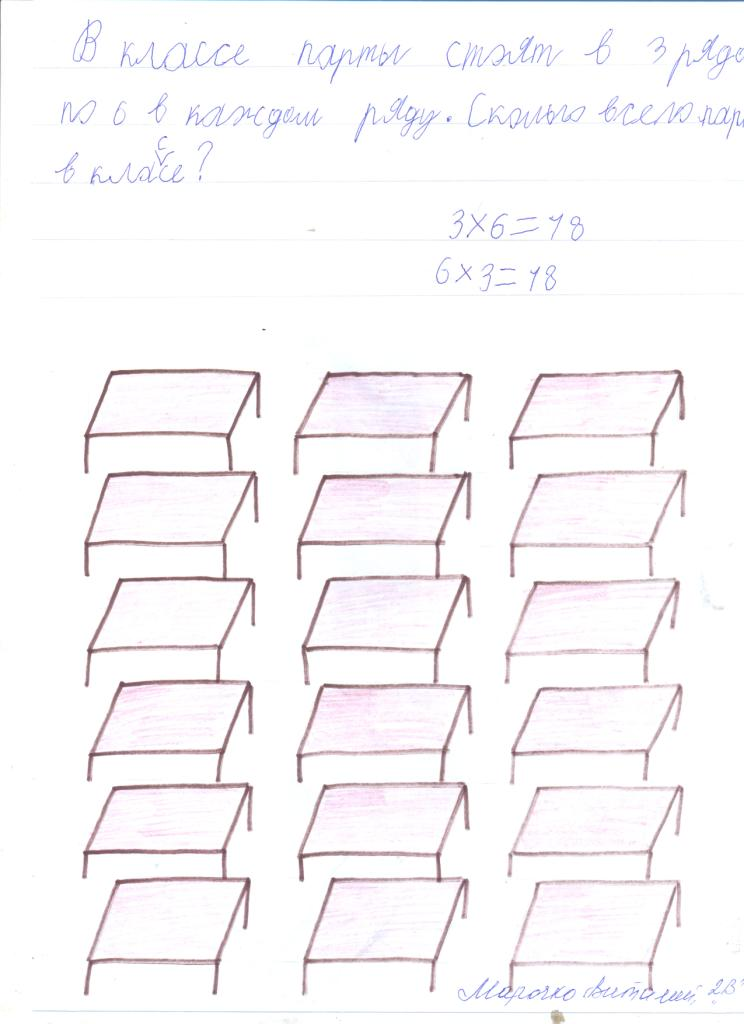 В классе парты стоят в 3 ряда
по 6 в каждом ряду. Сколько всего пар
в классе?
3×6=18
6×3=18
Марочко Виталий, 2"В"